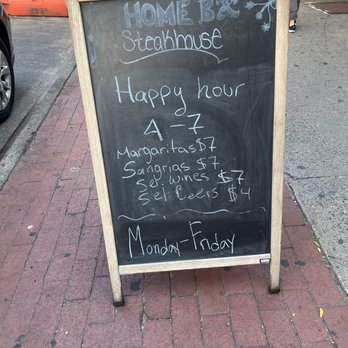 HOME BX
Steakhouse
Happy hour
4-7
Margaritas $7
Sangrias $7
Sel wines $7
Sel Beers $4
Monday-Friday